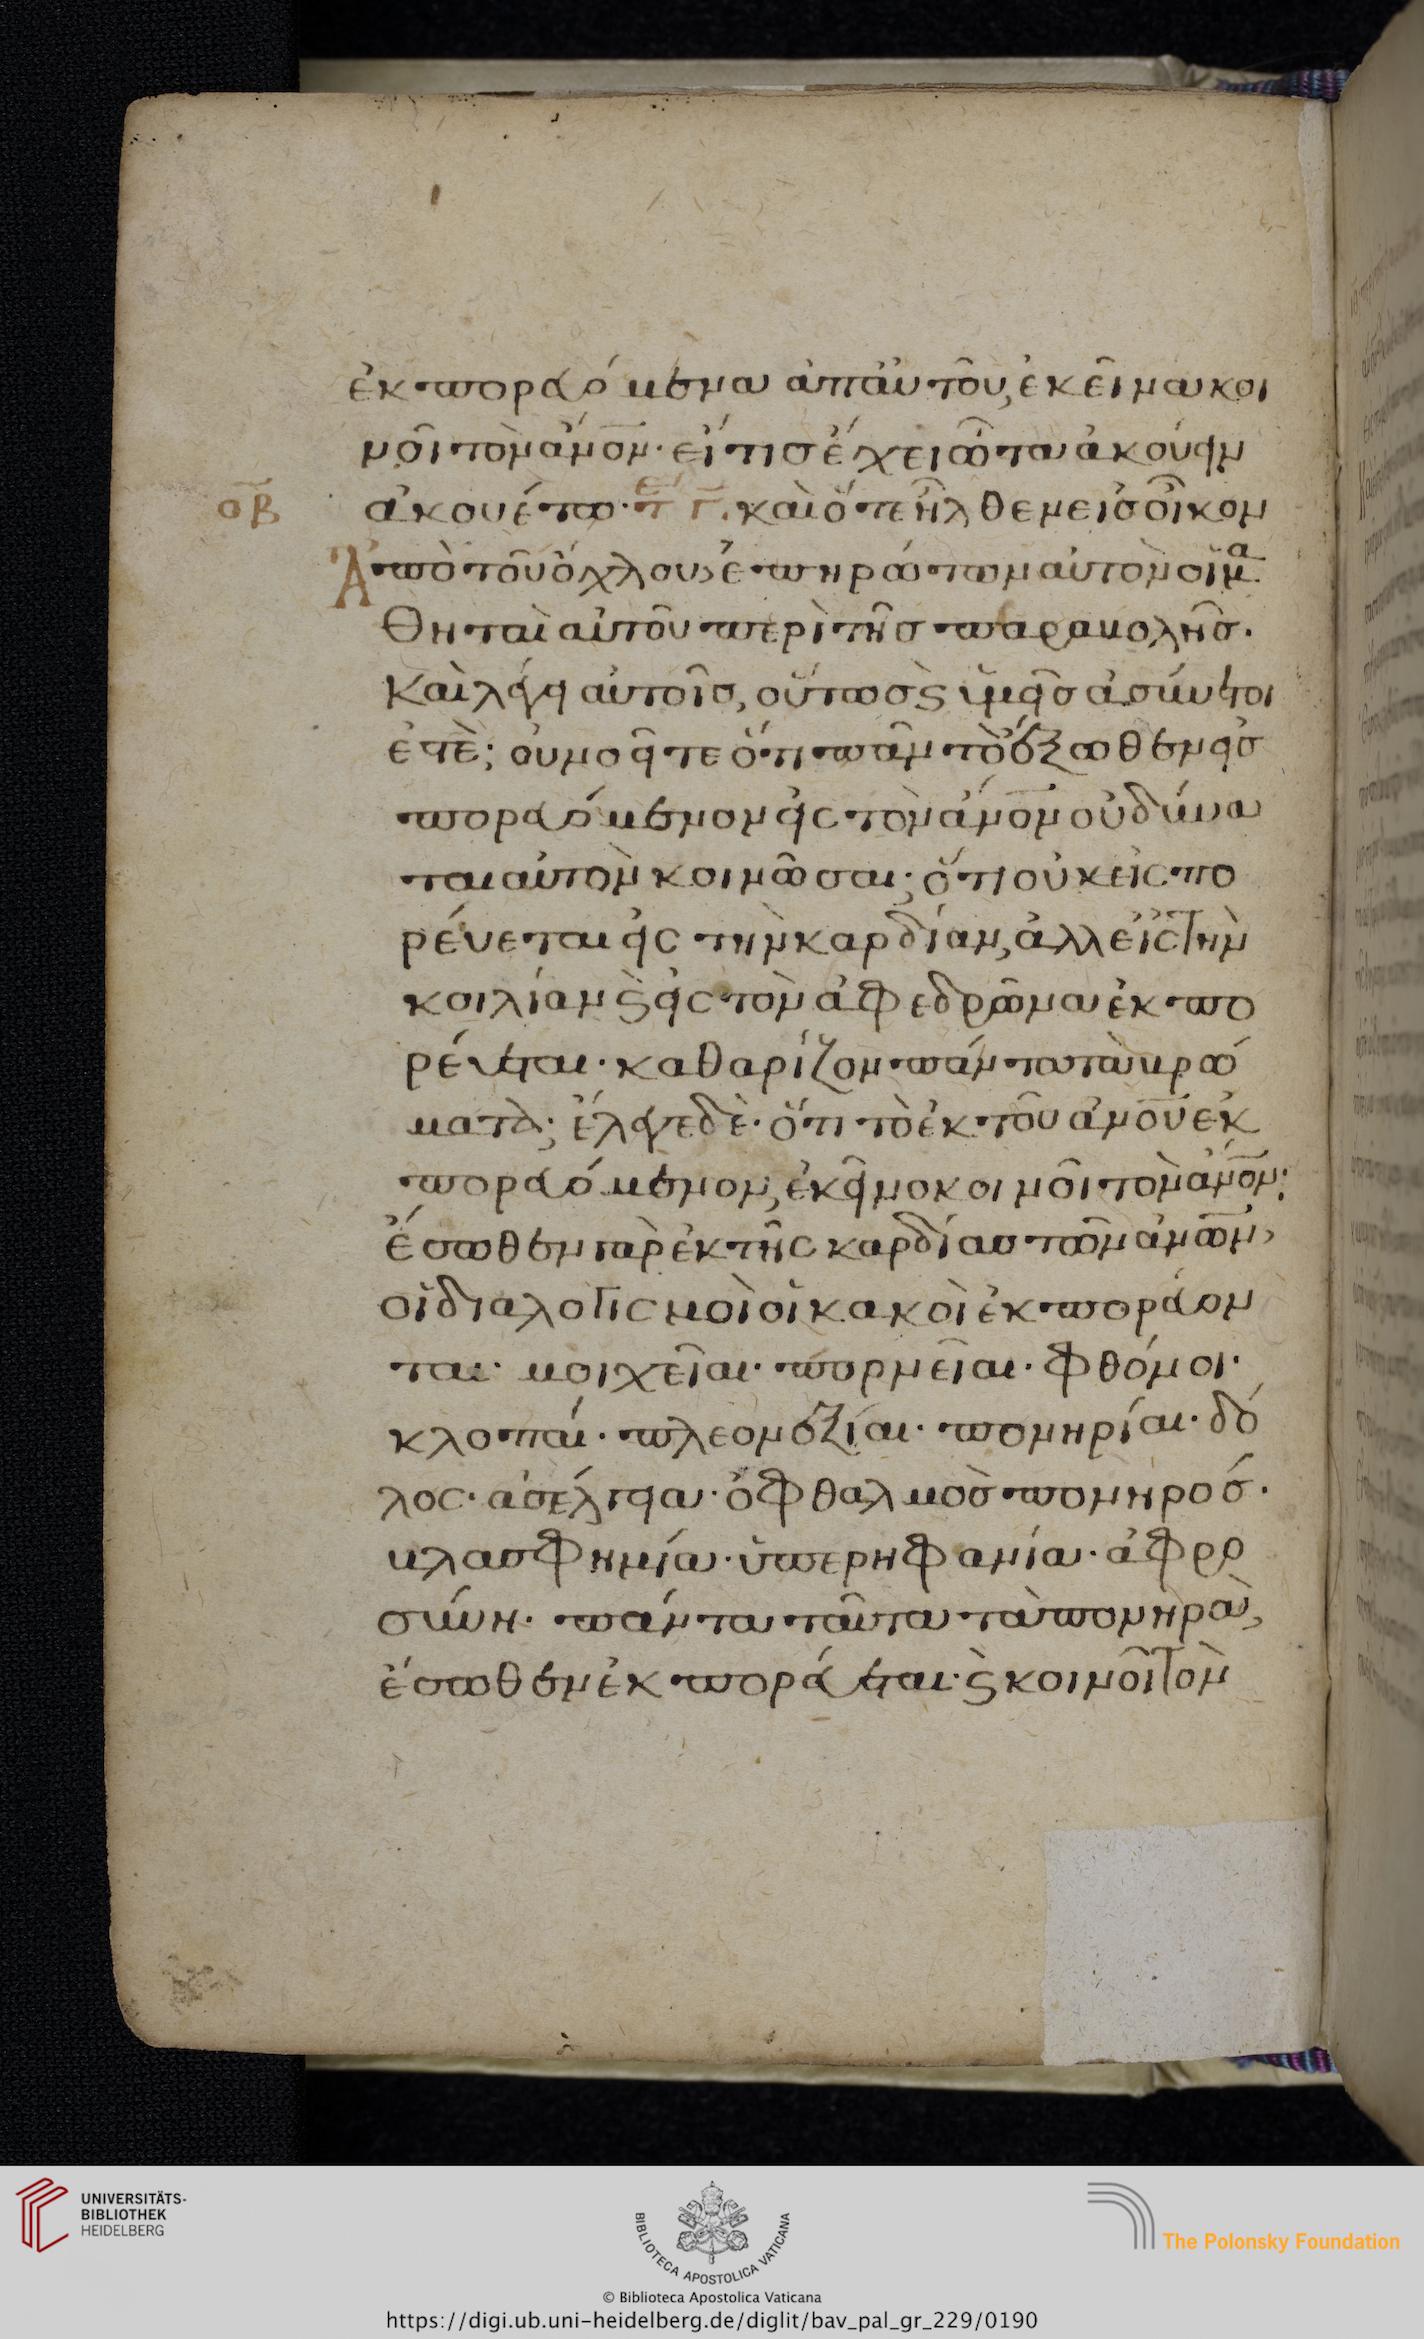 ἐκπορευόμενα ἀπ αὐτοῦ, ἐκεῖνα κοι
νοῖ τὸν ἄνον· εἴ τις ἔχει ὦτα ἀκούειν
οβ ἀκουέτω· καὶ ὅτε ἦλθεν εἰς οἶκον
Ἀπὸ τοῦ ὄχλου, ἐπηρώτων αὐτὸν οἱ μα
θηταὶ αὐτοῦ περὶ τῆς παραβολῆς.
Καὶ λέγει αὐτοῖς, οὕτως ϗ ὑμεῖς ἀσύνετοι
ἐστὲ; οὐ νοεῖτε ὅτι πᾶν τὸ ἔξωθεν εἰσ
πορευόμενον εἰς τὸν ἄνον οὐ δύνα
ται αὐτὸν κοινῶσαι; ὅτι οὐκ εἰσπο
ρεύεται εἰς τὴν καρδίαν, ἀλλ εἰς τὴν
κοιλίαν ϗ εἰς τὸν ἀφεδρῶνα ἐκπο
ρεύεται· καθαρίζον πάντα τὰ βρώ
ματα; ἔλεγε δὲ· ὅτι τὸ ἐκ τοῦ ἀνου ἐκ
πορευόμενον, ἐκεῖνο κοινοῖ τὸν ἄνον·
ἔσωθεν γὰρ ἐκ τῆς καρδίας τῶν ἀνων,
οἱ διαλογισμοὶ οἱ κακοὶ ἐκπορεύον
ται· μοιχεῖαι· πορνεῖαι· φθόνοι·
κλοπαί· πλεονεξίαι· πονηρίαι· δό
λος· ἀσέλγεια· ὀφθαλμὸς πονηρός·
βλασφημία· ὑπερηφανία· ἀφρο
σύνη· πάντα ταῦτα τὰ πονηρὰ,
ἔσωθεν ἐκπορεύεται· ϗ κοινοῖ τὸν
UNIVERSITÄTS-
BIBLIOTHEK
HEIDELBERG
BIBLIOTECA APOSTOLICA VATICANA
The Polonsky Foundation
© Biblioteca Apostolica Vaticana
https://digi.ub.uni-heidelberg.de/diglit/bav_pal_gr_229/0190